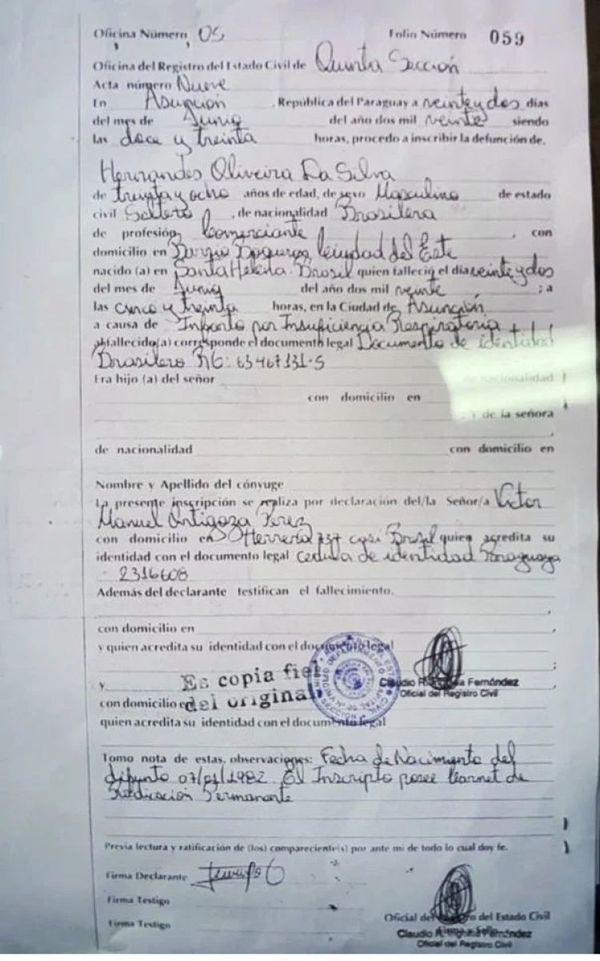 Oficina Número, 05 Folio Número 059
Oficina del Registro del Estado Civil de Quinta Sección
Acta número Nueve
En Asunción , República del Paraguay a veinte y dos días
del mes de Junio del año dos mil veinte siendo
las doce y treinta horas, procedo a inscribir la defunción de.
Hernandes Oliveira Da Silva
de treinta y ocho años de edad, de sexo Masculino de estado
civil Soltero , de nacionalidad Brasilera
de profesión, Comerciante , con
domicilio en Ciudad del Este
nacido (a) en Santa Helena. Brasil quien falleció el día veinte y dos
del mes de Junio del año dos mil veinte ; a
las cinco y treinta horas, en la Ciudad de Asunción
a causa de Infarto por Insuficiencia Respiratoria
al fallecido(a) corresponde el documento legal Documento de identidad
Brasilero RG: 63467131-5
Era hijo (a) del señor de nacionalidad
con domicilio en
de la señora
de nacionalidad con domicilio en
Nombre y Apellido del cónyuge
La presente inscripción se realiza por declaración del/la Señor/a Victor
Manuel Ortigoza Perez
con domicilio en Herrera 757 casi Brasil quien acredita su
identidad con el documento legal cedula de identidad Paraguaya
2316608
Además del declarante testifican el fallecimiento.
con domicilio en
y quien acredita su identidad con el documento legal
y Es copia fiel
del original
Oficial del Registro Civil
con domicilio en
quien acredita su identidad con el documento legal
Tomo nota de estas, observaciones: Fecha de Nacimiento del
difunto 07/01/1982. El Inscripto posee Carnet de
Radicacion Permanente
Previa lectura y ratificación de (los) compareciente(s) por ante mi de todo lo cual doy fe.
Firma Declarante
Firma Testigo
Firma Testigo
Oficial del Registro del Estado Civil
Firma y Sello
Oficial del Registro Civil